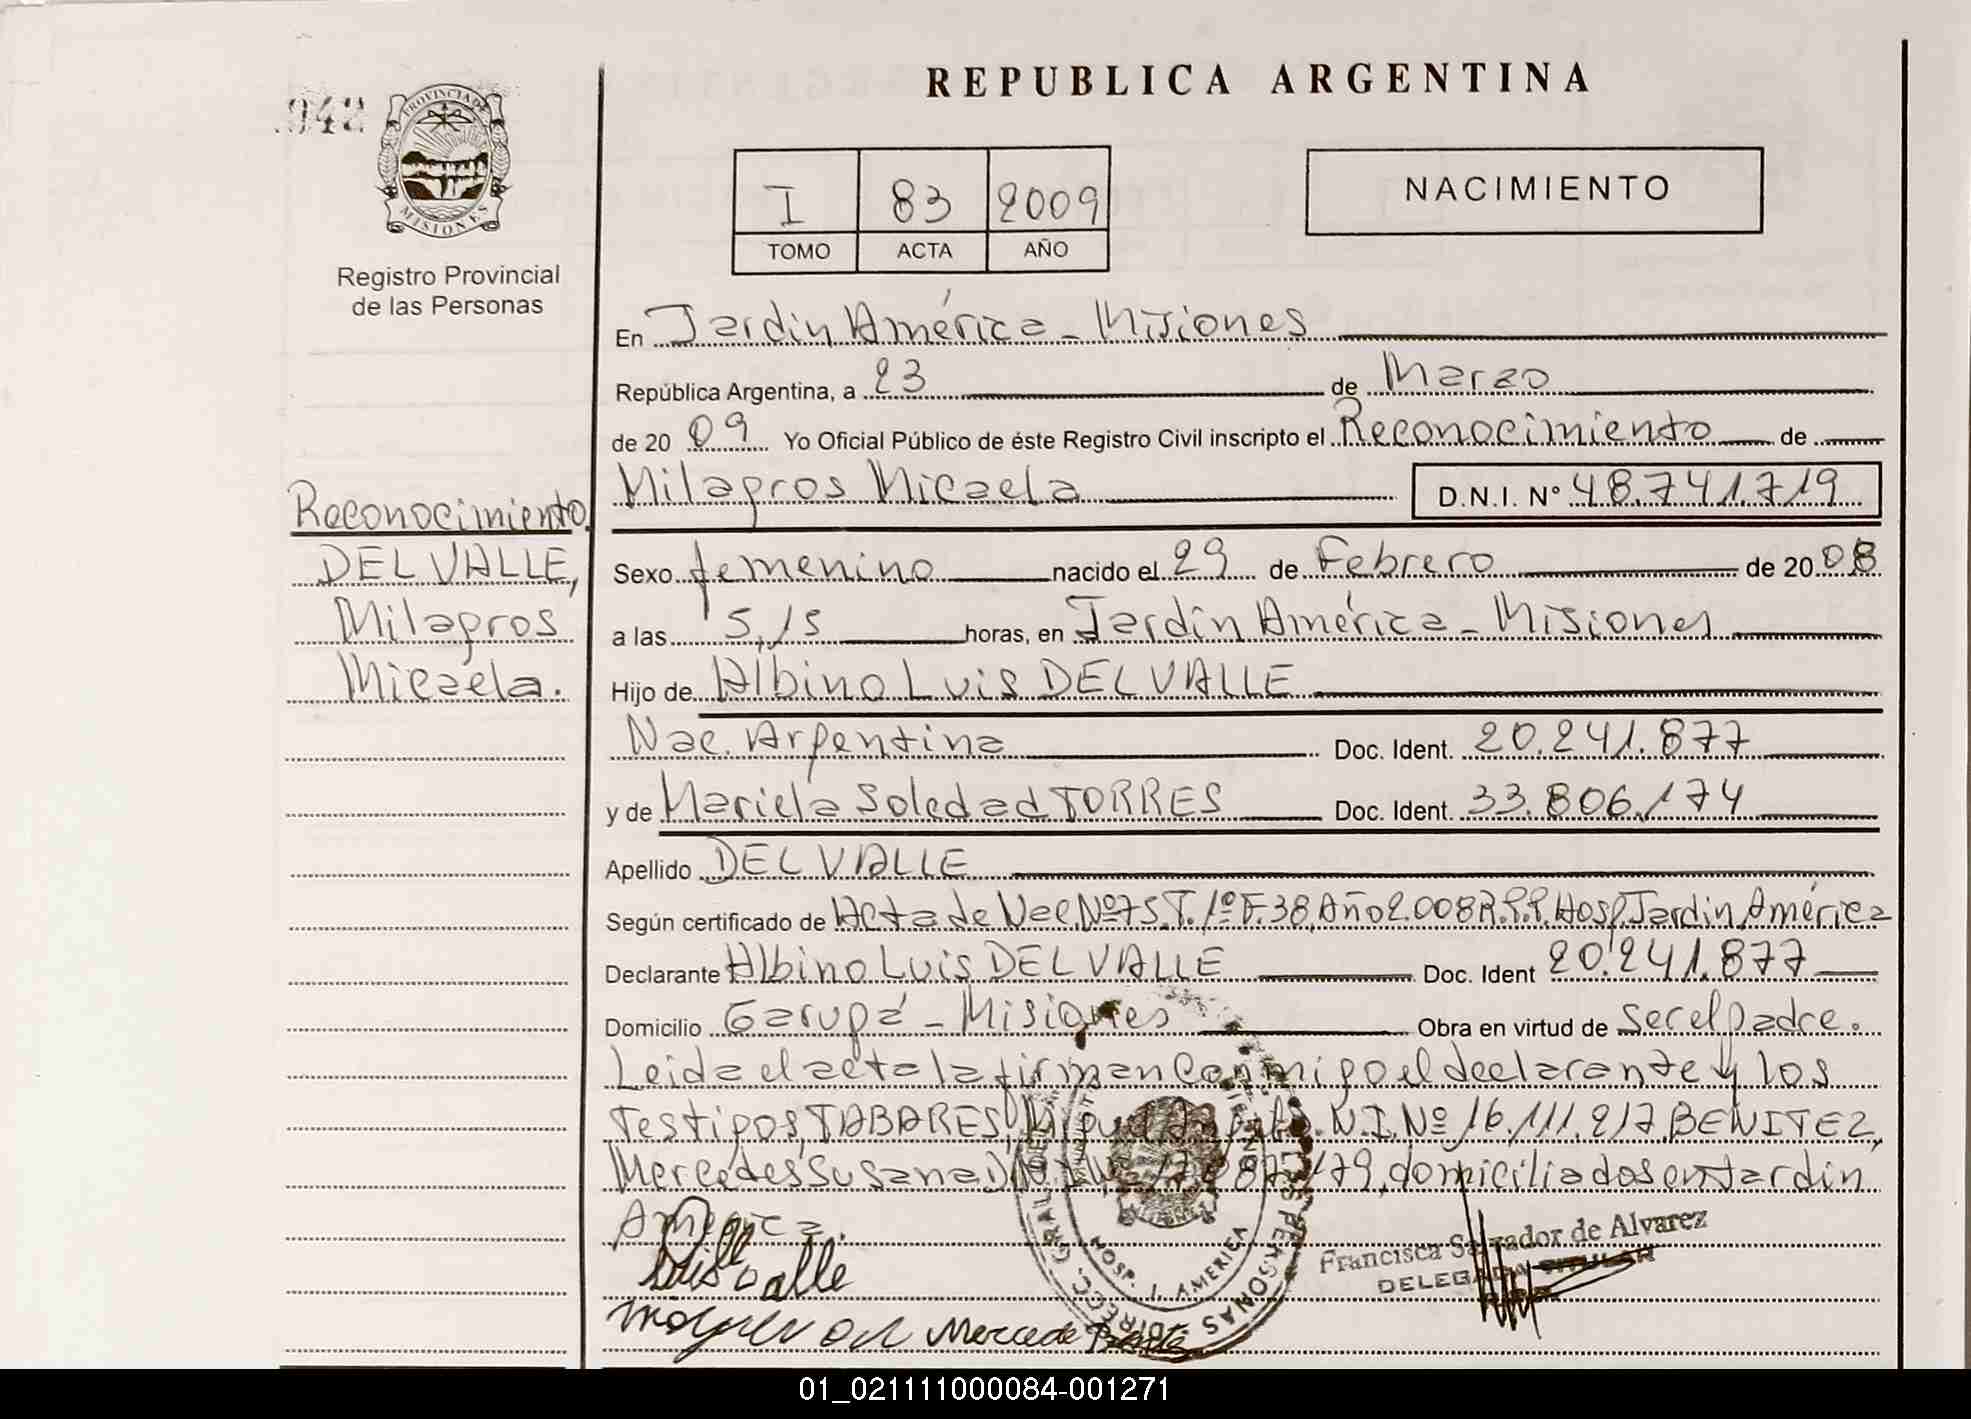 REPUBLICA ARGENTINA
942
PROVINCIA DE MISIONES
Registro Provincial
de las Personas
I 83 2009
TOMO ACTA AÑO
NACIMIENTO
En Jardín América - Misiones
República Argentina, a 23 de Marzo
de 2009 Yo Oficial Público de éste Registro Civil inscripto el Reconocimiento de
Milagros Micaela D.N.I. N° 48.741.719
Reconocimiento
DEL VALLE,
Milagros
Micaela.
Sexo femenino nacido el 29 de Febrero de 2008
a las 5,15 horas, en Jardín América - Misiones
Hijo de Albino Luis DEL VALLE
Nac. Argentina Doc. Ident. 20.241.877
y de Mariela Soledad TORRES Doc. Ident. 33.806.174
Apellido DEL VALLE
Según certificado de Acta de Nac. Nº 75 T. 1º F. 38, Año 2.008 R.P.P. Hosp. Jardín América
Declarante Albino Luis DEL VALLE Doc. Ident 20.241.877
Domicilio Garupá - Misiones Obra en virtud de ser el padre.
Leida el acta la firman conmigo el declarante y los
testigos, TABARES, N.I. Nº 16.111.217, BENITEZ,
Mercedes Susana 179, domiciliados en Jardín
América.
HOSP. J. AMERICA
Francisca Salvador de Alvarez
DELEGADA TITULAR
Luis Valle
Mercede
01_021111000084-001271